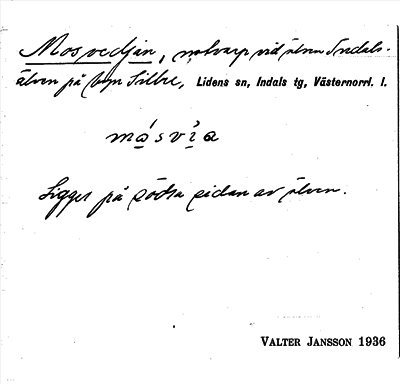 Mosvedjan, notvarp vid älven Indals-
älven på byn Sillre, Lidens sn, Indals tg, Västernorrl. l.
måsvi̇a
Ligger på södra sidan av älven.
VALTER JANSSON 1936